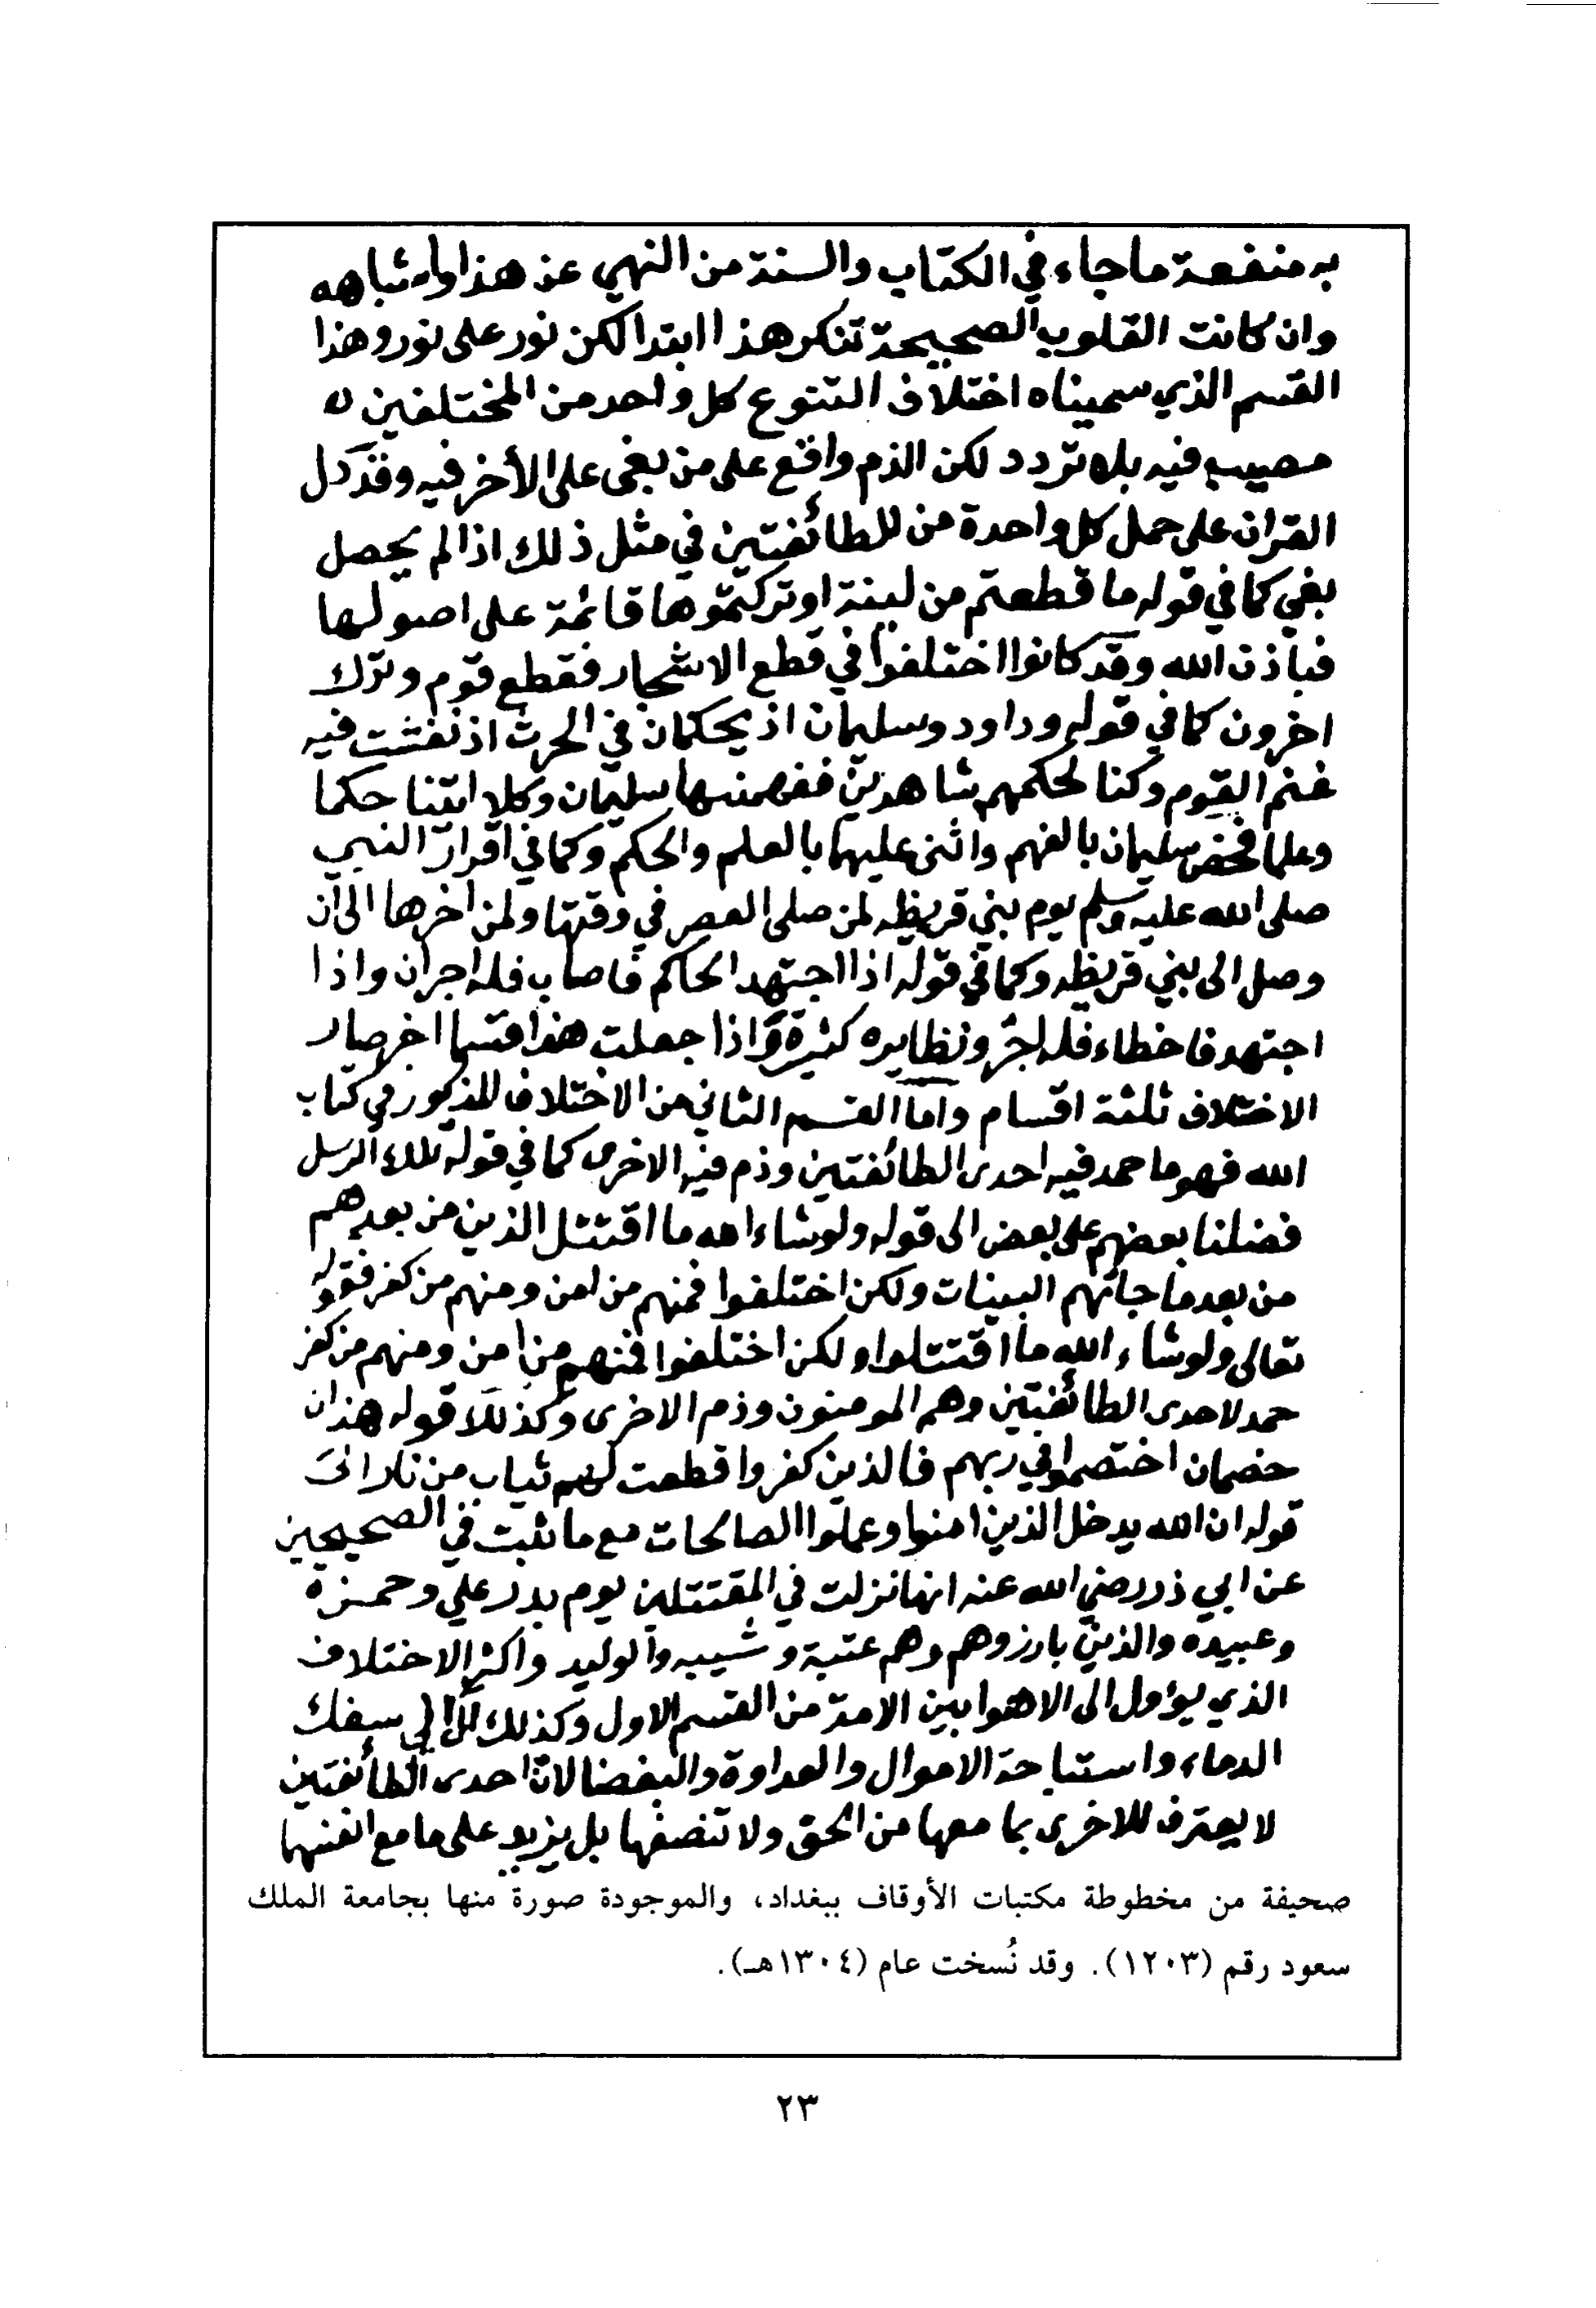 به منفعة ما جاء في الكتاب والسنة من النهي عن هذا واشباهه
وان كانت القلوب الصحيحة تنكر هذا ابتدا لكن نور على نور وهذا
القسم الذي سميناه اختلاف التنوع كل واحد من المختلفين
مصيب فيه بلا تردد لكن الذم واقع على من بغى على الأخر فيه وقد دل
القران على حمل كل واحدة من للطائفتين في مثل ذلك اذا لم يحصل
بغي كما في قوله ما قطعتم من لينة او تركتموها قائمة على اصولها
فباذن الله وقد كانوا اختلفوا في قطع الاشجار فقطع قوم وترك
اخرون كما في قوله وداود وسليمان اذ يحكمان في الحرث اذ نفشت فيه
غنم القوم وكنا لحكمهم شاهدين ففهمنها سليمان وكلا اتينا حكما
وعلما فخص سليمان بالفهم واثنى عليهما بالعلم والحكم وكما في اقرار النبي
صلى الله عليه وسلم يوم بني قريظه لمن صلى العصر في وقتها ولمن اخرها الى ان
وصل الى بني قريظه وكما في قوله اذا اجتهد الحاكم فاصاب فله اجران واذا
اجتهد فاخطاء فله اجر ونظايره كثيرة واذا جعلت هذا قسما اخر صار
الاختلاف ثلثة اقسام واما القسم الثاني من الاختلاف المذكور في كتاب
الله فهو ما حمد فيه احدى الطائفتين وذم فيه الاخرى كما في قوله تلك الرسل
فضلنا بعضهم على بعض الى قوله ولو شاء الله ما اقتتل الذين من بعدهم
من بعد ما جاتهم البينات ولكن اختلفوا فمنهم من امن ومنهم من كفر فقوله
تعالى ولو شاء الله ما اقتتلوا ولكن اختلفوا فمنهم من امن ومنهم من كفر
حمد لاحدى الطائفتين وهم المومنون وذم الاخرى وكذلك قوله هذان
خصمان اختصموا في ربهم فالذين كفروا قطعت لهم ثياب من نار الى
قوله ان الله يدخل الذين امنوا وعملوا الصالحات مع ما ثبت في الصحيحين
عن ابي ذر رضي الله عنه انها نزلت في المقتتلين يوم بدر علي وحمزة
وعبيده والذين بارزوهم وهم عتبة وشيبه والوليد واكثر الاختلاف
الذي يؤول الى الاهوا بين الامة من القسم الاول وكذلك الى سفك
الدماء واستباحة الاموال والعداوة والبغضا لان احدى الطائفتين
لا يعترف للاخرى بما معها من الحق ولا تنصفها بل يزيد على ما مع انفسها
صحيفة من مخطوطة مكتبات الأوقاف ببغداد، والموجودة صورة منها بجامعة الملك
سعود رقم (١٢٠٣). وقد نُسخت عام (١٣٠٤هـ).
٢٣